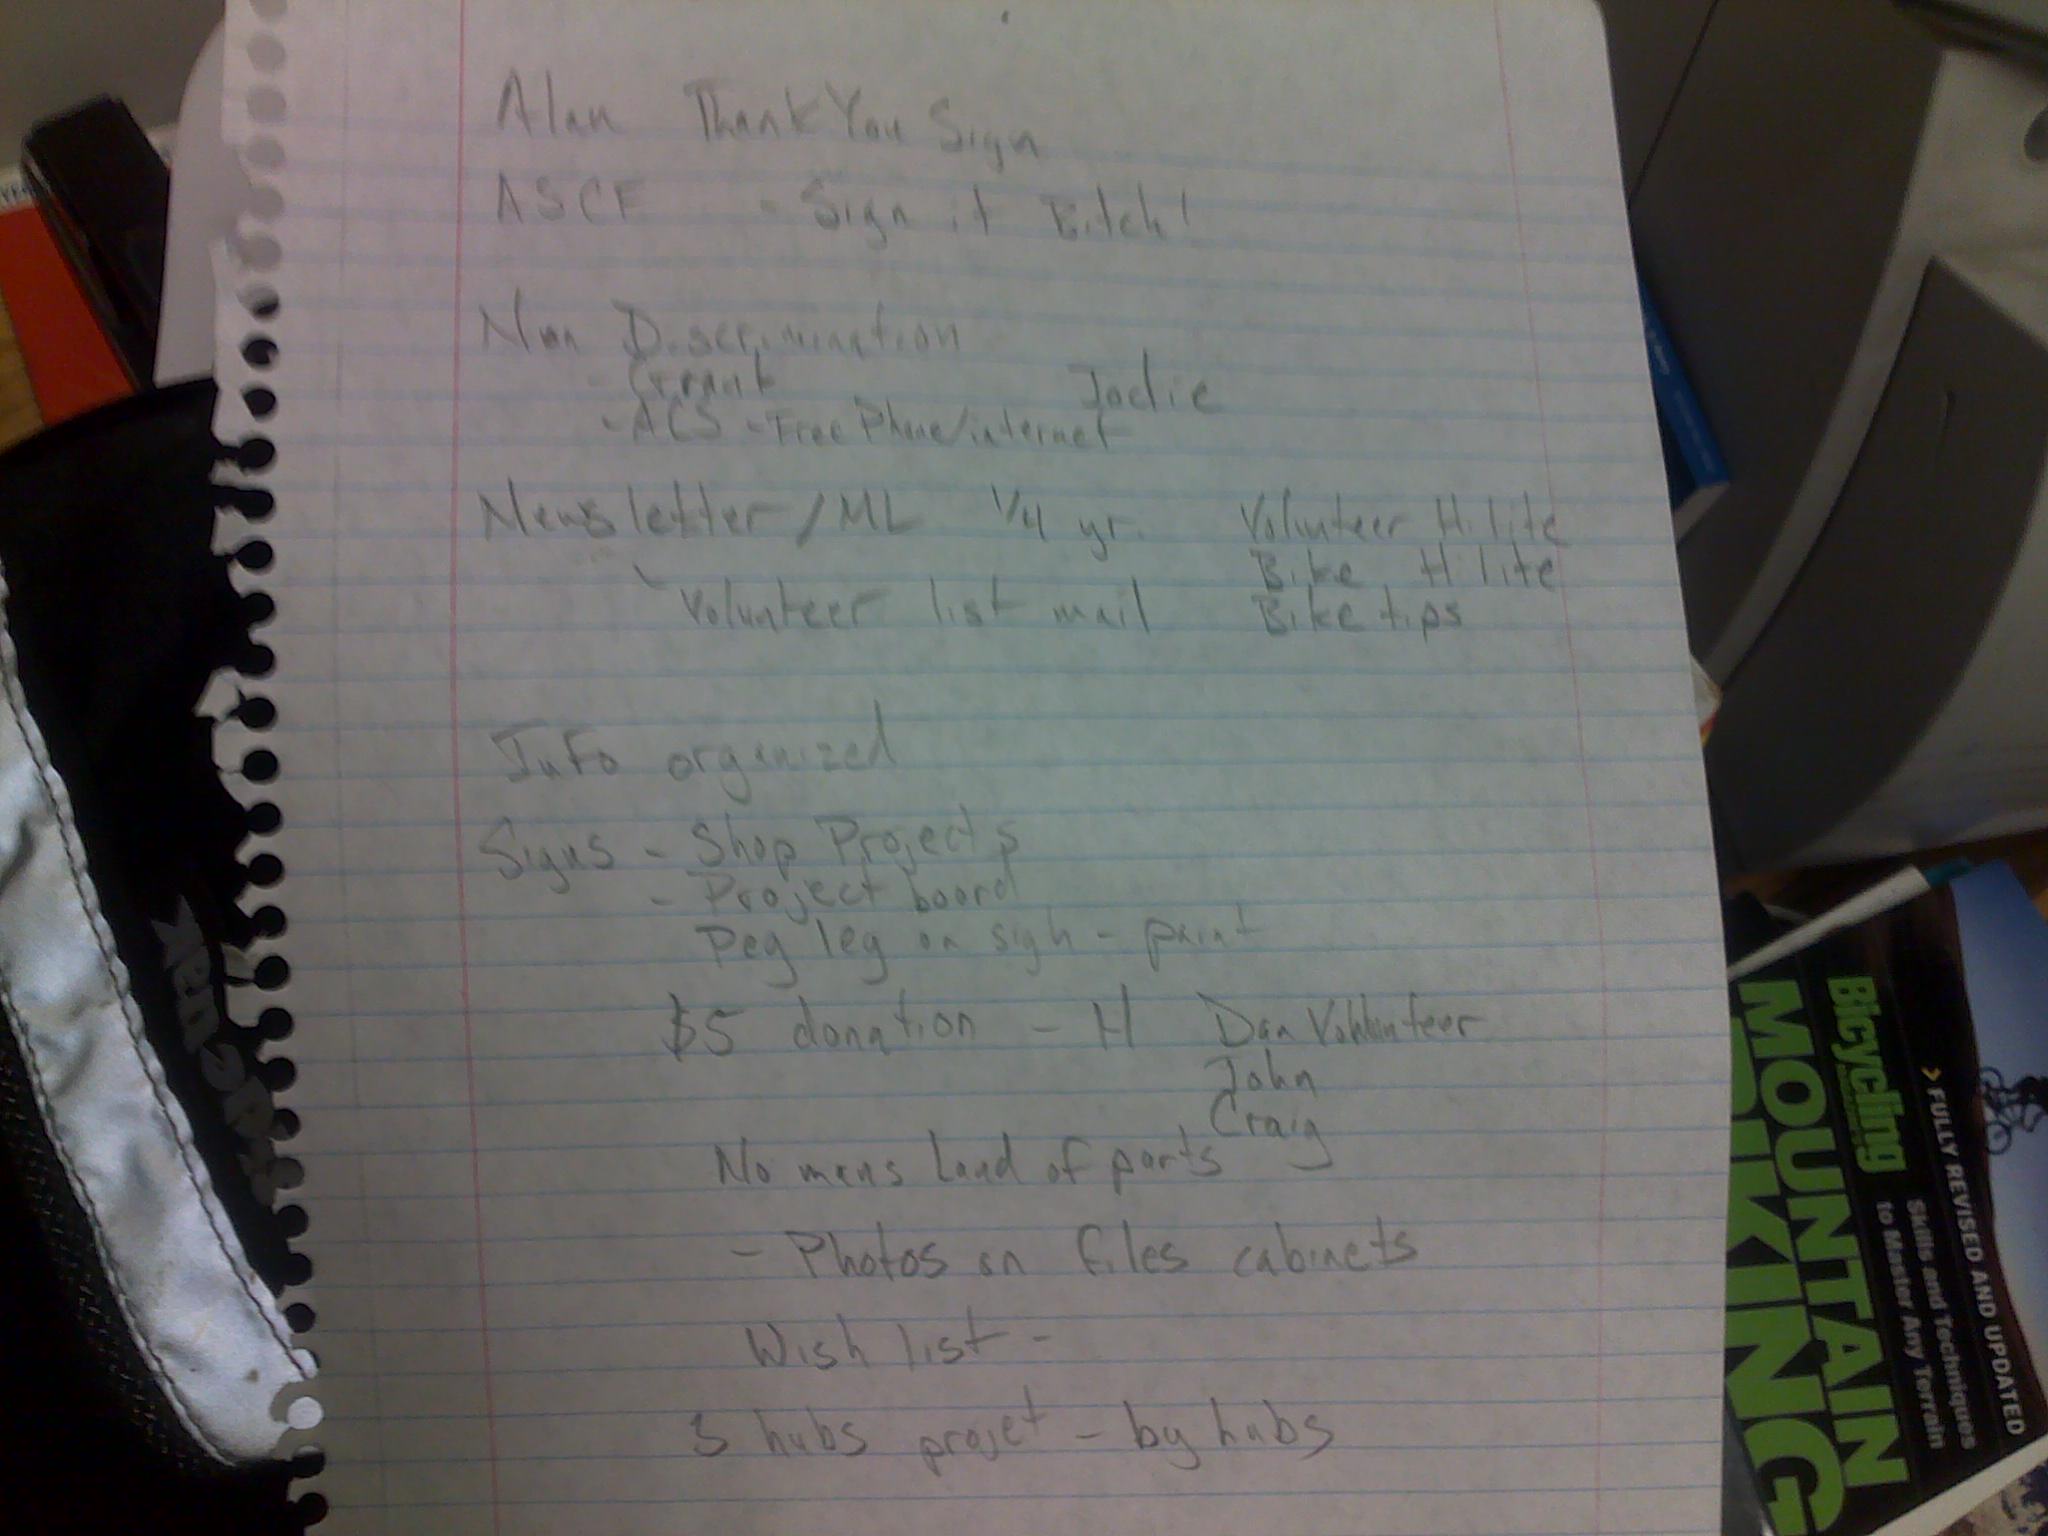 Alan Thank You Sign
ASCE - Sign it Bitch!
Non Discrimination
- Grant Jodie
- ACS - Free Phone/internet
Newsletter/ML 1/4 yr. Volunteer Hilite
Bike Hilite
Volunteer list mail Bike tips
Info organized
Signs - Shop Projects
- Project board
Peg leg on sign - paint
$5 donation - H Dan Volunteer
John
Craig
No mans land of parts
- Photos on files cabinets
Wish list -
3 hubs projet - by hubs
Bicycling
MOUNTAIN
BIKING
FULLY REVISED AND UPDATED
Skills and Techniques
to Master Any Terrain